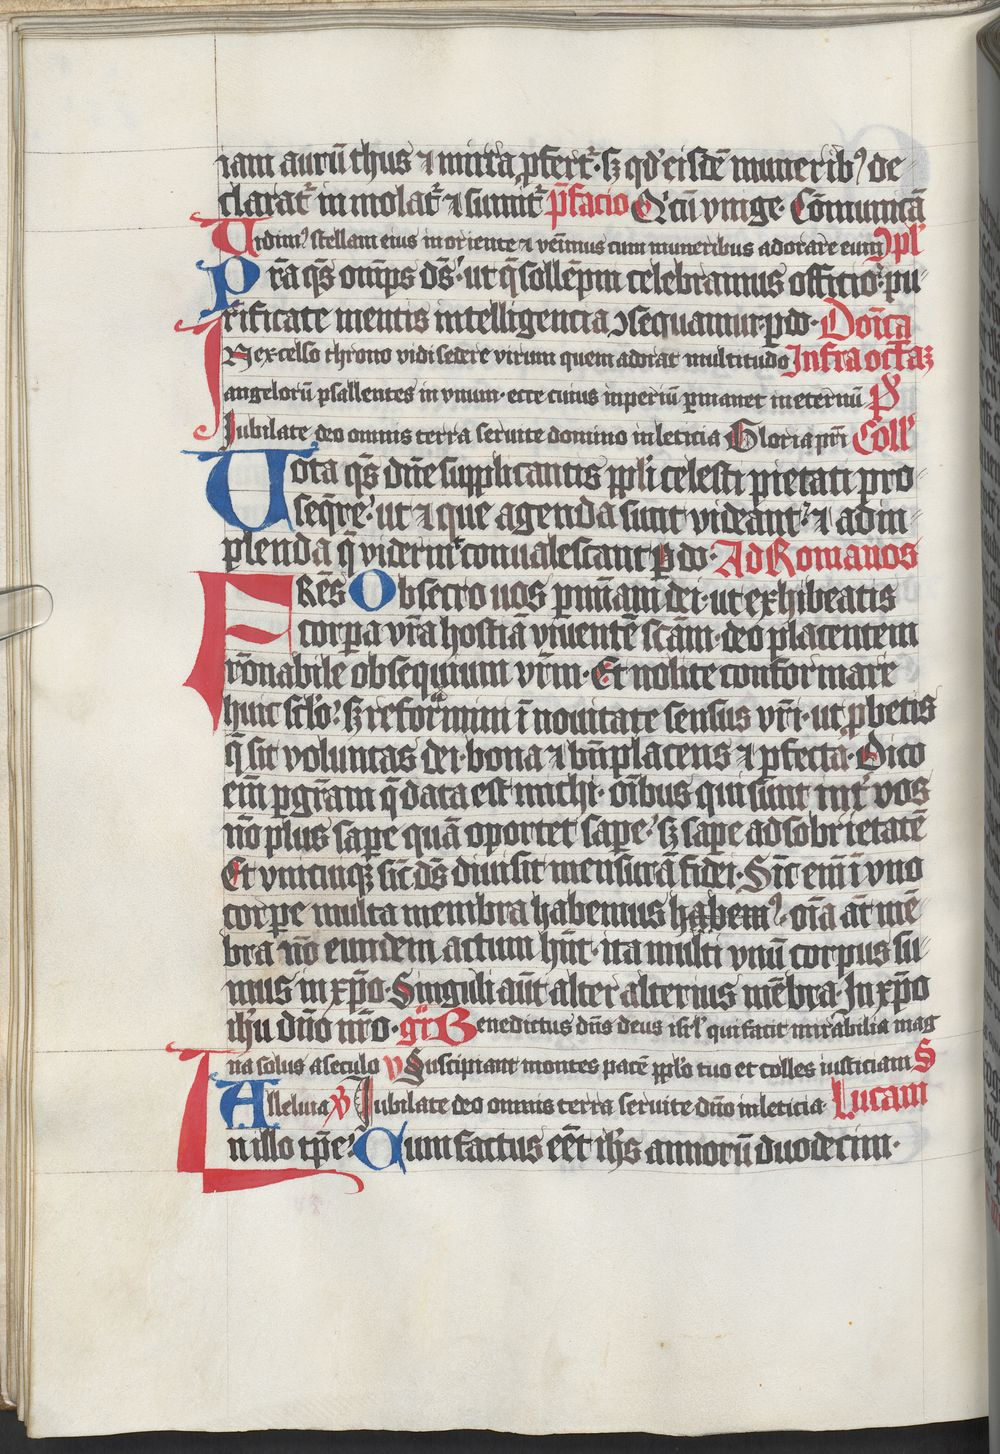 iam aurū thus ⁊ mirra ꝓfert᷑· sꝫ qd' eisdē munerib⁹ de
clarat᷑ inmolat᷑ ⁊ sumit᷑ p̄facio Q' cū vnige· Cōmunicā
Uidim⁹ stellam eius in oriente ⁊ venimus cum muneribus adorare eum Ↄpl'
Pr̄a q̄s omīps ds̄· ut q̄ sollēpni celebramus officio· pu
rificate mentis intelligencia ↄsequamur· p do· Domīca
In excelso throno vidi sedere virum quem adorat multitudo Infra octaꝫ
angelorū psallentes in vnum· ecce cuius inperiū ꝑmanet in eternū Ps
Jubilate deo omnis terra seruite domino in leticia Gloria pr̄i Coll'
Uota q̄s dn̄e supplicantis ppl'i celesti pietati pro
seq̄re· ut ⁊ que agenda sunt videant· ⁊ ad im
plenda q̄ viderint conualescant p do· Ad Romanos
FRēs Obsecro uos p mīam dei· ut exhibeatis
corpora vr̄a hostiā viuentē sc̄am· deo placentem
rōnabile obsequium vr̄m· Et nolite conformare
huic sc'lo· sꝫ reformim̄ ī nouitate sensus vr̄i· ut ꝓbetis
q̄ sit voluntas dei· bona ⁊ bn̄placens ⁊ ꝑfecta· Dico
em̄ p gr̄am q̄ data est michi· oībus qui sunt int' vos
nō plus sape quā oportet sape· sꝫ sape ad sobrietatē
Et vnicuiqꝫ sic̄ ds̄ diuisit mensurā fidei· Sic̄ em̄ ī vno
corpe multa membra habemus habem⁹· oīa at̄ mē
bra nō eundem actum hn̄t· ita multi vnū corpus su
mus in xp̄o· Singuli aūt alter alterius mēbra· In xp̄o
ih'u dn̄o nr̄o· gr̄ Benedictus dn̄s deus isr'l qui facit mirabilia mag
na solus a seculo V Suscipiant montes pacē ppl'o tuo et colles iusticiam S
Alleluia V Jubilate deo omnis terra seruite dn̄o in leticia· Lucam
In illo tpr̄e· Cum factus eēt ih's annorū duodecim·